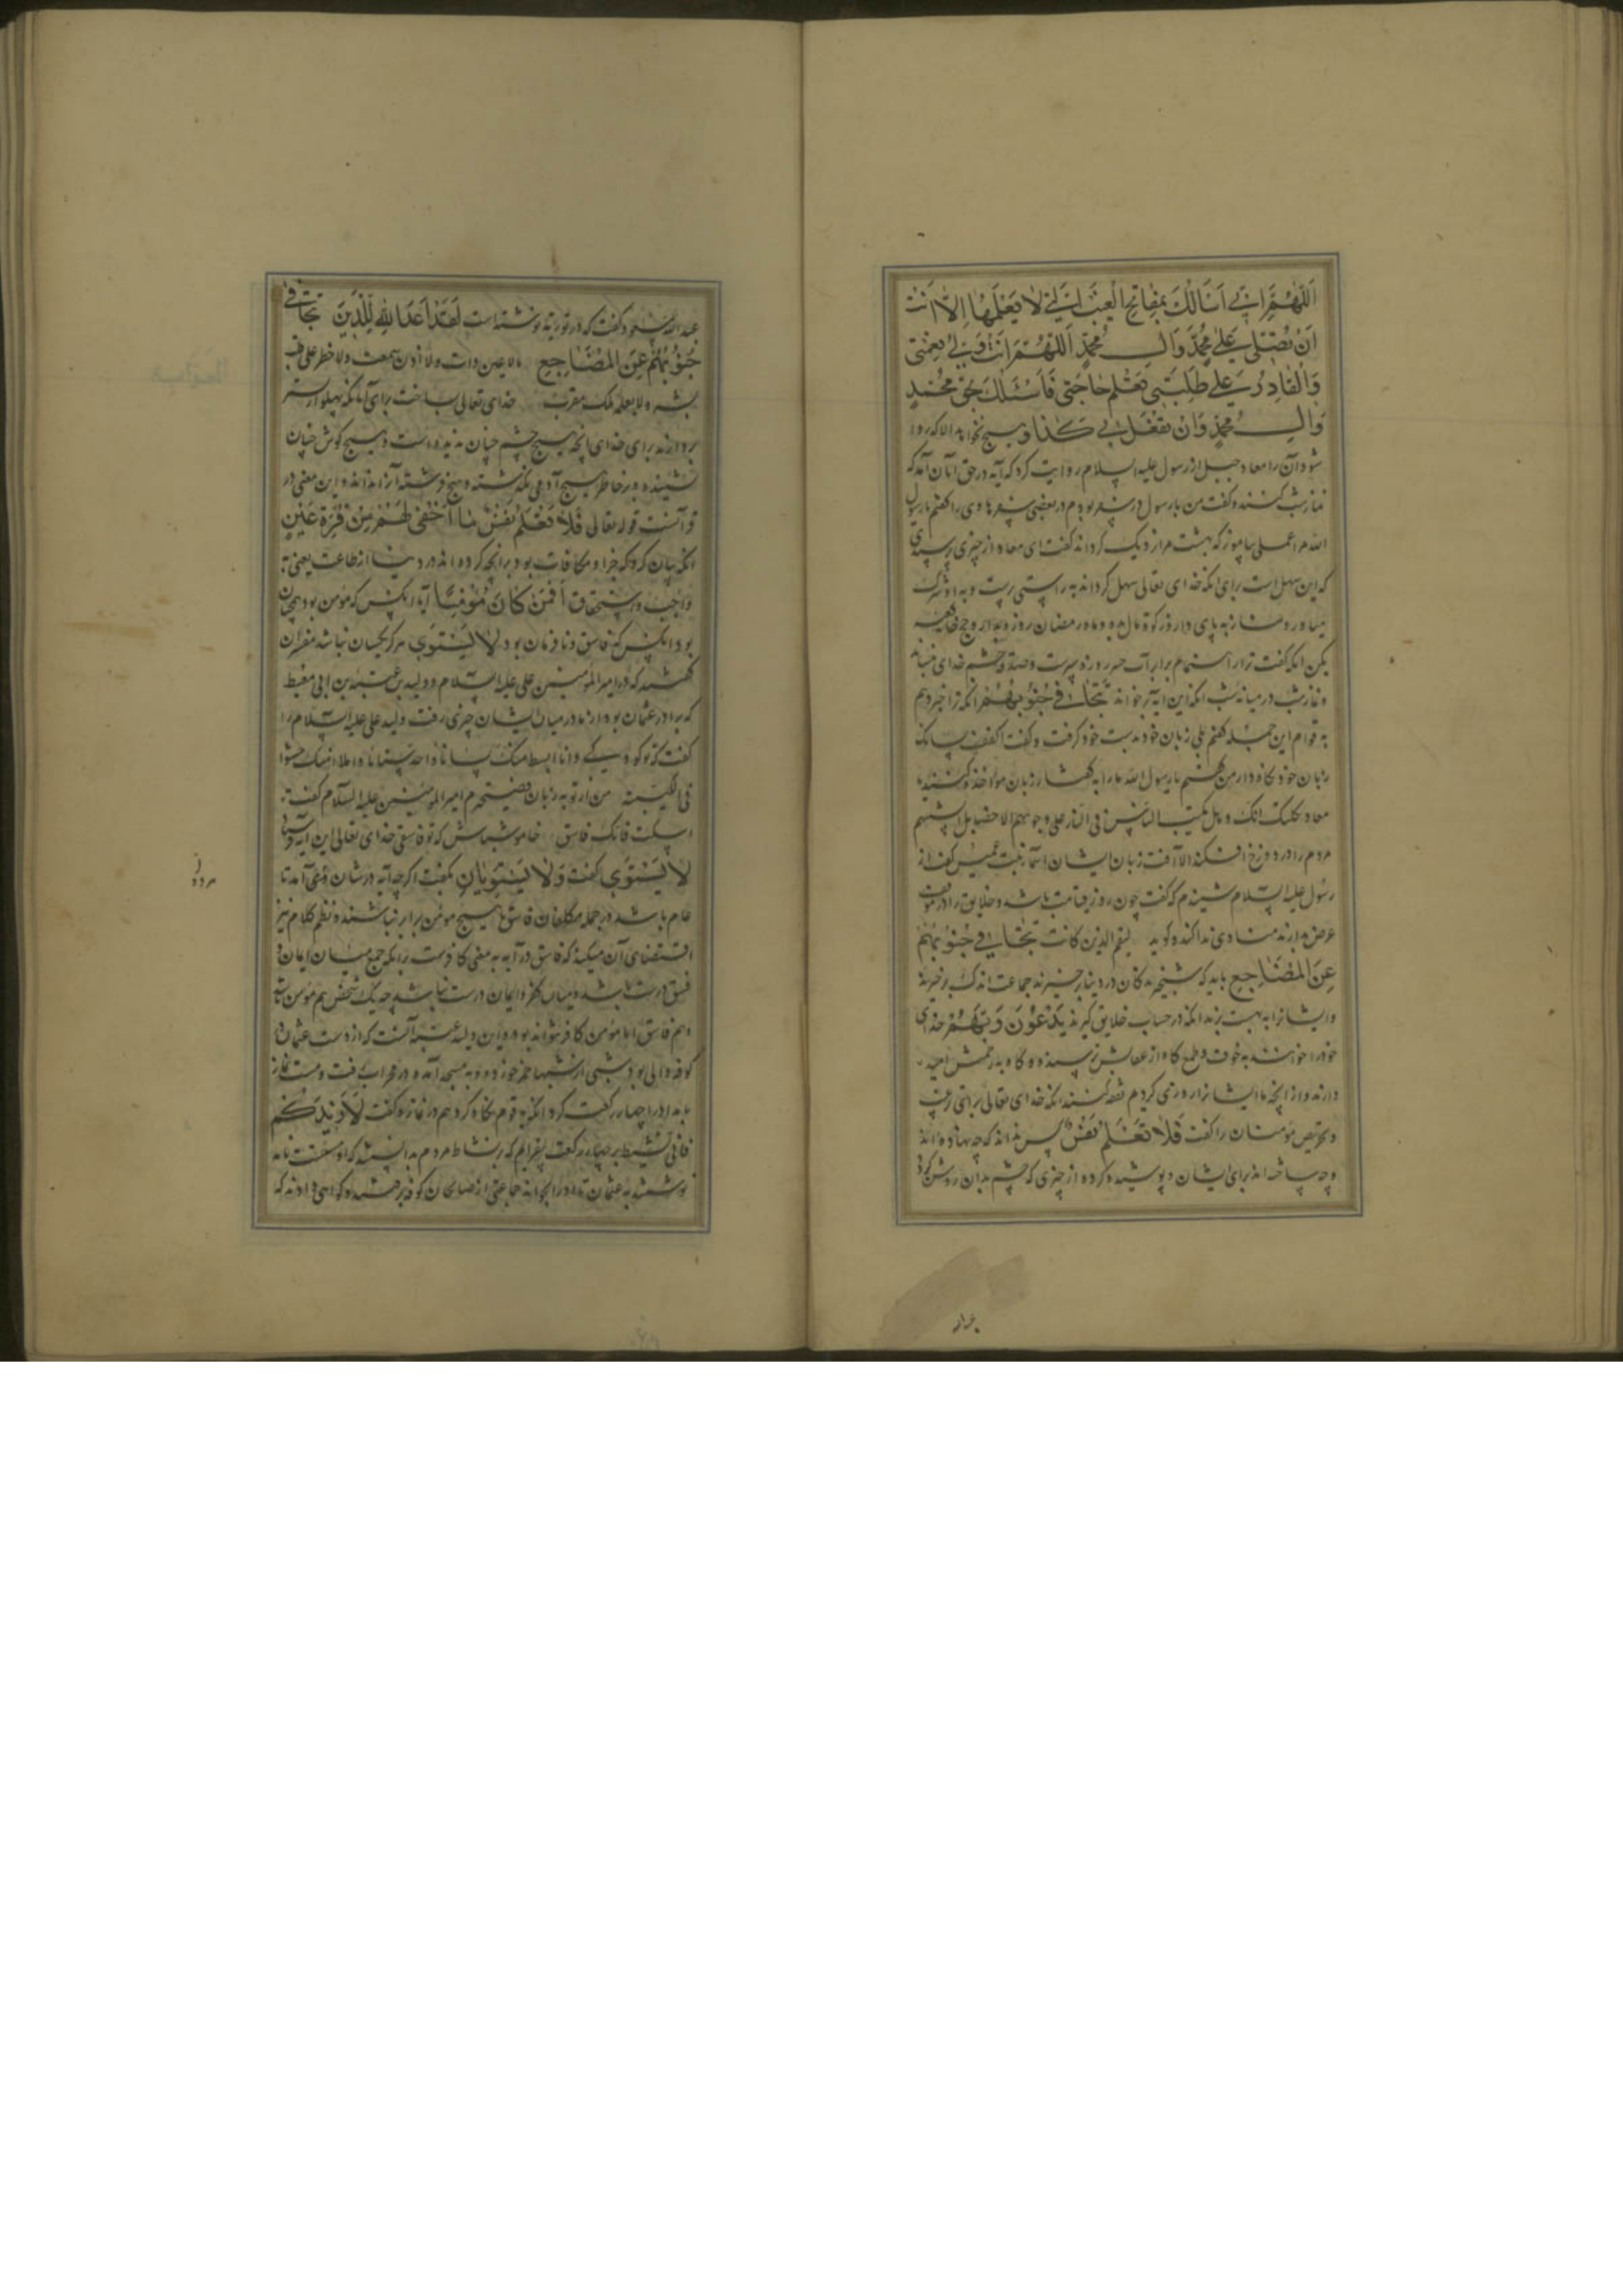 اَللّٰهُمَّ اِنّی اَسَالُكَ بِمَفَاتِحِ الْغَیْبِ الَّتی لَا یَعْلَمُهَا اِلَّا اَنْتَ
اَنْ تُصَلّی عَلی مُحَمَّدٍ وَ الِ مُحَمَّدٍ اَللّٰهُمَّ اَنْتَ وَلِیُّ نِعْمَتی
وَالْقَادِرُ عَلی طَلِبَتی تَعْلَمُ حَاجَتی فَاَسْئَلُكَ بِحَقِّ مُحَمَّدٍ
وَ الِ مُحَمَّدٍ وَاَنْ تَفْعَلَ بی كَذَا و هیچ نخواهد الا که روا
شود آن را معاد جبل از رسول علیه السلام روایت کرد که آیه در حق آنان آمد که
نماز شب کنند و گفت من با رسول در سفر بودم در بعضی سفرها وی را گفتم یا رسول
الله مرا عملی بیاموز که بهشت مرا نزدیک گرداند گفت ای معاد از چیزی پرسیدی
که این سهل است برای آنکه خدای تعالی سهل گرداند به راستی پرست و به او شرک
میاور و نماز به پای دار و زکوة مال بده و ماه رمضان روزه بدار و حج
بکن آنکه گفت ترا راهنمایم برابر آب خیر روزه سپرست و صدقه خشم خدای بنشاند
و نماز شب در میانه شب آنکه این آیه برخواند تَتَجَافی جُنُوبُهُمْ آنکه ترا خبر دهم
به قوام این جمله گفتم بلی زبان خود بدست خود گرفت و گفت اکفف لسانک
زبان خود نگاه دار من گفتم یا رسول الله ما را به گفتار زبان مواخذه کنند یا
معاد ثکلتک امک و هل یکب الناس فی النار علی وجوههم الا حصاید السنتهم
مردم را در دوزخ افکند الا آفت زبان ایشان اسماء بنت عمیس گفت از
رسول علیه السلام شنیدم که گفت چون روز قیامت باشد و خلایق را در موقف
عرض بدارند منادی ندا کند و گوید لیقم الذین کانت تَتَجَافی جُنُوبُهُمْ
عَنِ الْمَضَاجِعِ باید که شبخیزکان در دنیا برخیزند جماعت اندک برخیزند
و ایشانرا به بهشت برند آنکه در حساب خلایق گیرند یَدْعُونَ رَبَّهُمْ خدای
خود را خوانند به خوف و طمع گاه از عقابش ترسیده و گاه به رحمتش امید
دارند و از آنچه ما ایشانرا روزی کردیم نفقه کنند آنکه خدای تعالی برای ترغیب
و تحریص مؤمنان را گفت فَلَا تَعْلَمُ نَفْسٌ پس نداند که چه نهاده اند
و چه ساخته اند برای ایشان و پوشیده کرده از چیزی که چشم بدان روشن گردد
عبدالله مسعود گفت که در توریة نوشته است لَقَدْ اَعَدَّ اللهُ لِلَّذینَ تَتَجَافی
جُنُوبُهُمْ عَنِ الْمَضَاجِعِ ما لا عین رات ولا اذن سمعت ولا خطر علی قلب
بشر ولا یعلمه ملک مقرب خدای تعالی ساخت برای آنانکه پهلو از بستر
بردارند برای خدای آنچه هیچ چشم چنان ندیده است و هیچ گوش چنان
نشنیده و بر خاطر هیچ آدمی نگذشته و هیچ فرشته آنرا نداند و این معنی در
قرآنست قوله تعالی فَلَا تَعْلَمُ نَفْسٌ مَا اُخْفِیَ لَهُمْ مِنْ قُرَّةِ عَیْنٍ
آنکه بیان کرد که جزا و مکافات بود بر آنچه کرده اند در دنیا از طاعت یعنی
واجب و استحقاق اَفَمَنْ كَانَ مُؤْمِنًا آیا آنکس که مؤمن بود همچنان
بود آنکس که فاسق و نافرمان بود لَا یَسْتَوی هرگز یکسان نباشد مفسران
گفتند که در امیرالمؤمنین علی علیه السلام و ولید بن عقبه بن ابی معیط
که برادر عثمان بود از مادر میان ایشان چیزی رفت ولید علی علیه السلام را
گفت که تو کودکی و انا ابسط منک لسانا و احد سنانا و املا منک حشوا
فی الکتیبة من از تو به زبان فصیحترم امیرالمؤمنین علیه السلام گفت
اسکت فانک فاسق خاموش باش که تو فاسقی خدای تعالی این آیه فرستاد
لَا یَسْتَوی گفت وَلَا یَسْتَوِیَانِ نگفت اگرچه آیه در شان دو تن آمد تا
عام باشد در جمله مکلفان فاسق با هیچ مؤمن برابر نباشند و نظم کلام نیز
اقتضای آن میکند که فاسق در آیه به معنی کافرست برای آنکه جمع میان ایمان و
فسق درست باشد و میان کفر و ایمان درست نباشد چه یک شخص هم مؤمن باشد
و هم فاسق اما مؤمن کافر نتواند بود و این ولید عقبه آنست که از دست عثمان در
کوفه والی بود شبی از شبها خمر خورده و به مسجد آمد و در محراب رفت و مست نماز
بامداد را چهار رکعت کرد آنکه به قوم نگاه کرد هم در نماز و گفت لَاَزیدَكُمْ
فانی نشیط بر چهار رکعت بیفزایم که بنشاط مردم بدانستند که او مستست نامه
نوشتند به عثمان تا او را بخواند جماعتی از صالحان کوفه برخاستند و گواهی دادند که